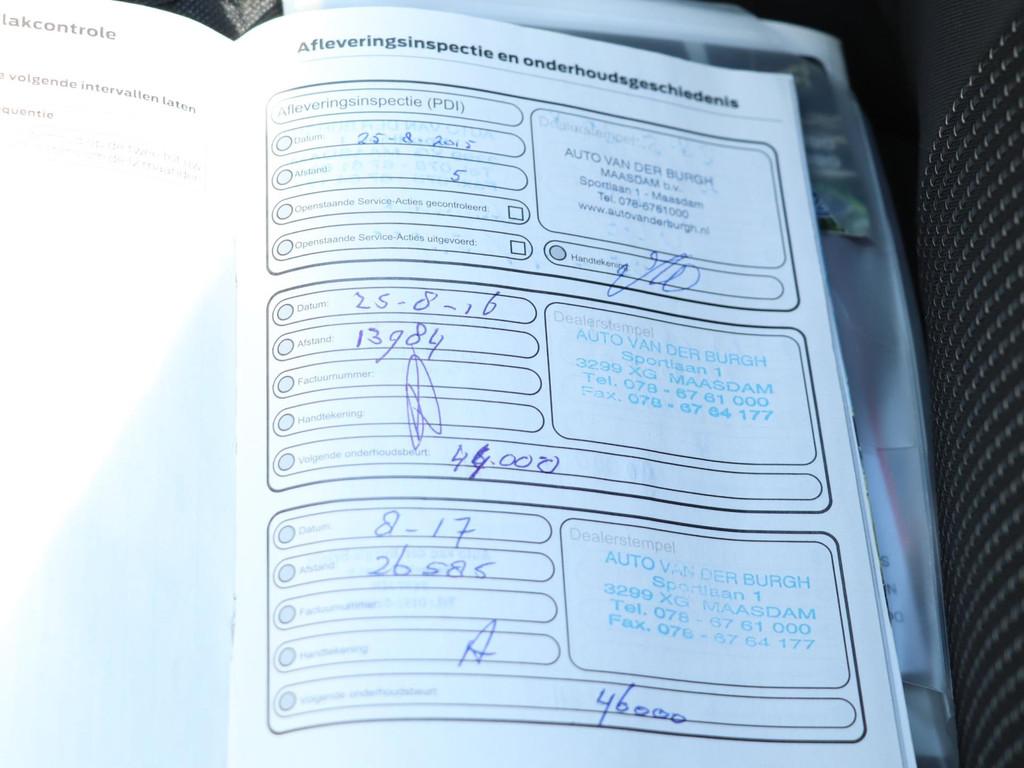 lakcontrole
e volgende intervallen laten
equentie
Afleveringsinspectie en onderhoudsgeschiedenis
Afleveringsinspectie (PDI)
Datum: 25-8-2015
Afstand: 5
Openstaande Service-Acties gecontroleerd:
Openstaande Service-Acties uitgevoerd:
Dealerstempel
AUTO VAN DER BURGH
MAASDAM b.v.
Sportlaan 1 - Maasdam
Tel. 078-6761000
www.autovanderburgh.nl
Handtekening
Datum: 25-8-16
Afstand: 13984
Factuurnummer:
Handtekening:
Volgende onderhoudsbeurt: 44.000
Dealerstempel
AUTO VAN DER BURGH
Sportlaan 1
3299 XG MAASDAM
Tel. 078 - 67 61 000
Fax. 078 - 67 64 177
Datum: 8-17
Afstand: 26585
Factuurnummer:
Handtekening:
Volgende onderhoudsbeurt: 46000
Dealerstempel
AUTO VAN DER BURGH
Sportlaan 1
3299 XG MAASDAM
Tel. 078 - 67 61 000
Fax. 078 - 67 64 177